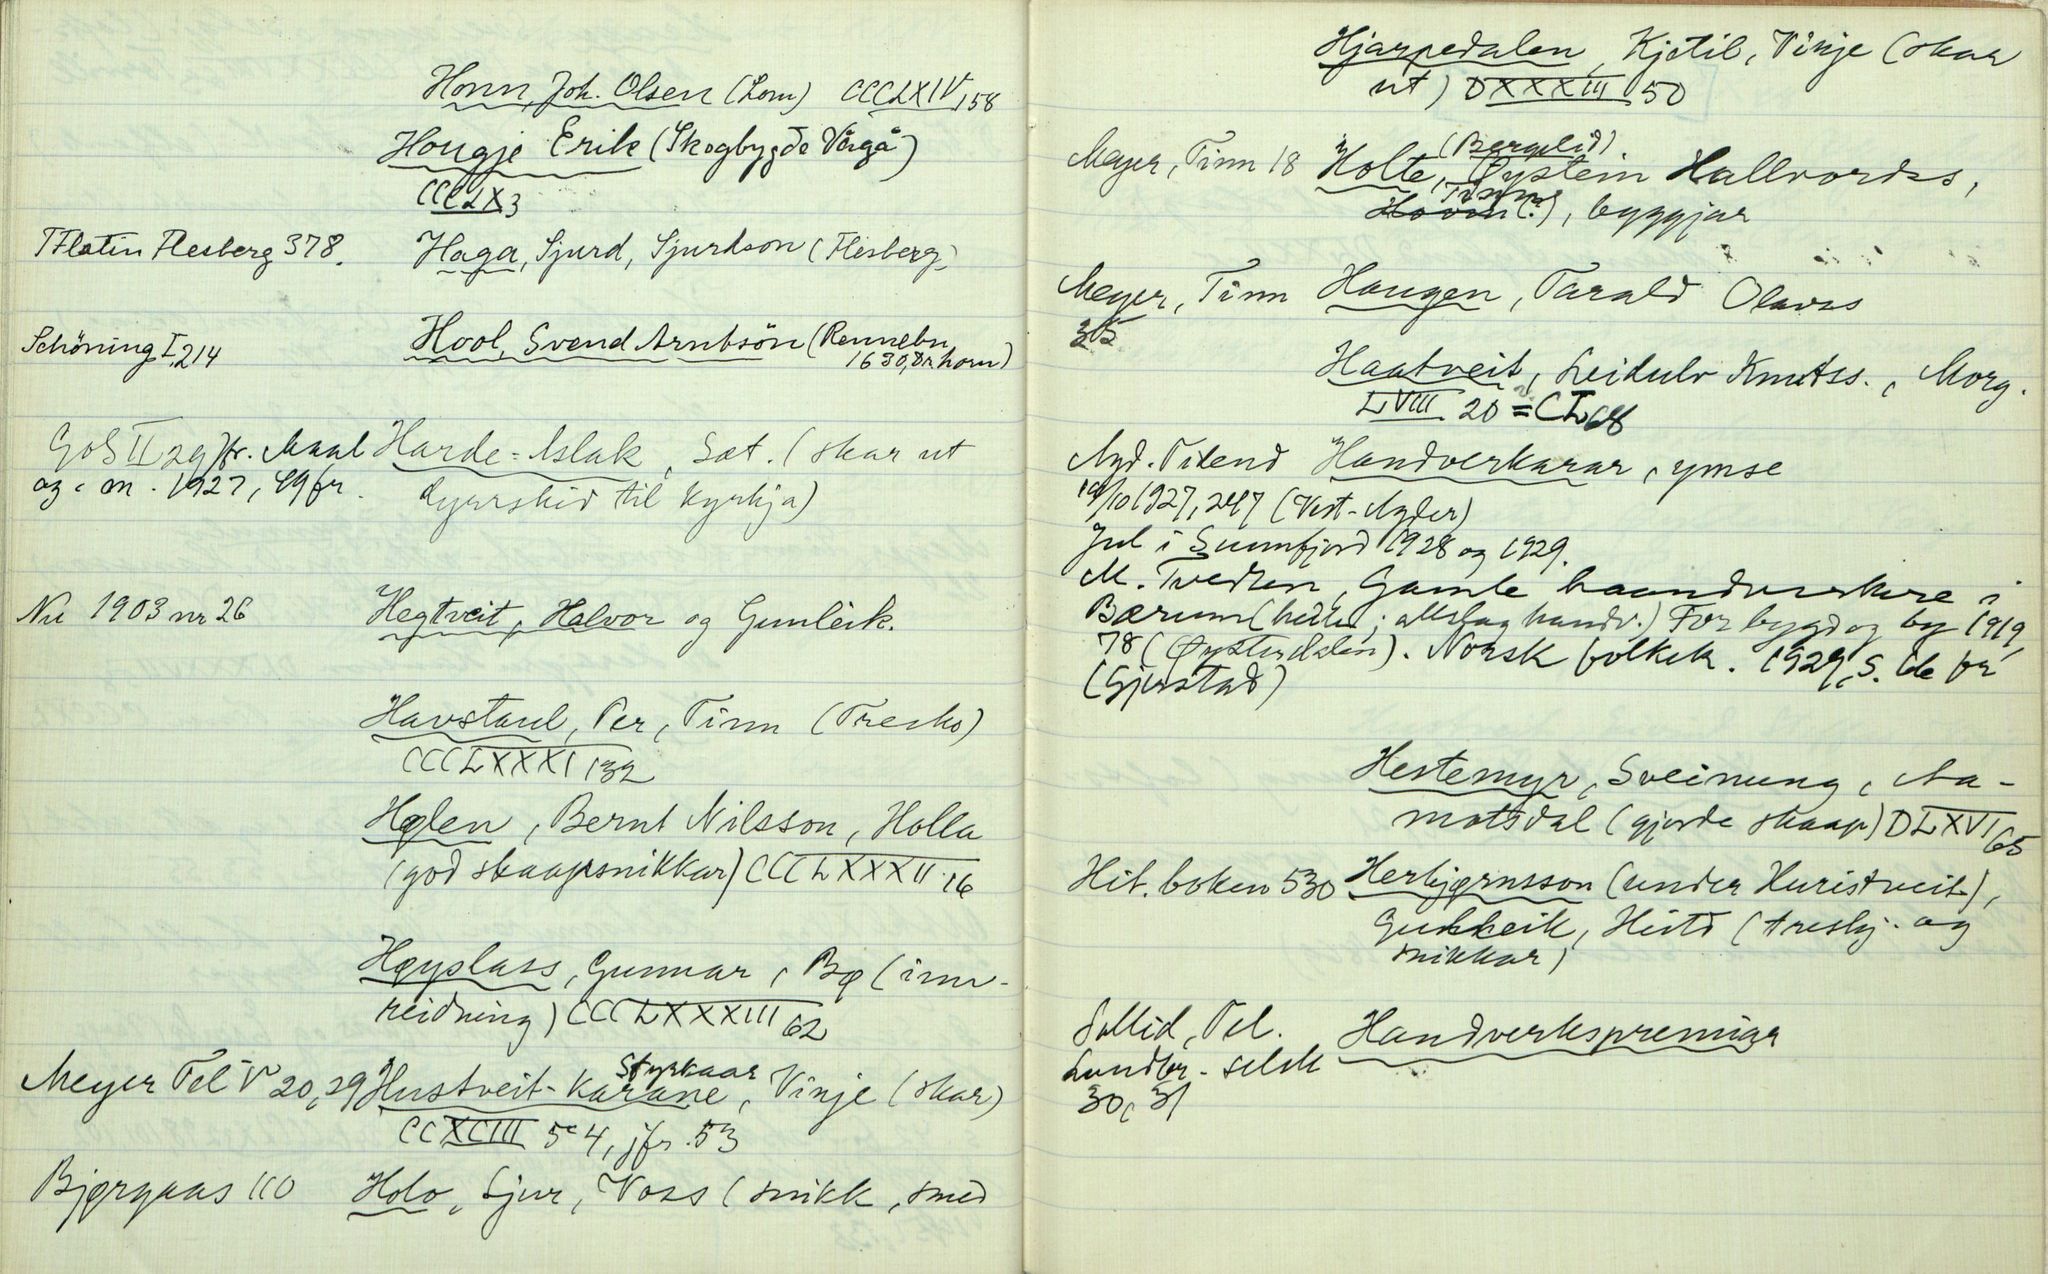 Honn, Joh. Olsen (Lom) CCCLXIV 158
Hougje Erik (Skogbygde Vågå)
CCCLX 3
TFlatin Flesberg 378. Haga, Sjurd, Sjurdson (Flesberg)
Schöning I, 214 Hool, Svend Arntsön (Rennebu
1630, Dr. horn)
GoS II 29 fr. Maal Harde-Aslak, Sæt. (skar ut
og m. 1927, 49 fr. dyrskid til kyrkja)
Nu 1903 nr 26 Hegtveit, Halvor og Gunleik.
Havstaul, Per, Tinn (Tresko)
CCCLXXXI 132
Hølen, Bernt Nilsson, Holla
(god skaapsnikkar) CCCLXXXII 16
Høyslass, Gunnar, Bø (inn-
reidning) CCCLXXXIII 62
Styrkaar
Meyer Tel V 20, 29 Hustveit-karane, Vinje (skar)
CCXCIII 54, jfr. 53
Bjørgaas 110 Holo, Sjur, Voss (snikk, smed
Hjarpedalen, Kjetil, Vinje (skar
ut) DXXXIII 50
(Bergelid)
Meyer, Tinn 18 Holte, Øystein Hallvordss,
Tinn
Hovin (?), byggjar
Meyer, Tinn Haugen, Tarald Olavss
35
Haatveit, Leidulv Knutss., Morg.
LVIII 20 = CL 68
Agd. Tidend Handverkarar, ymse
19/10 1927, 247 (Vest-Agder)
Jul i Sunnfjord 1928 og 1929.
M. Tvedten, Gamle haandverkere i
Bærum (heile; allslag handv.) For bygd og by 1919,
78 (Øysterdalen). Norsk folkek. 1929, S. fr
(Gjerstad)
Hestemyr, Sveinung, Aa-
motsdal (gjorde skaap) DLXVI 65
Hit. boken 530 Herbjørnsson (under Kuristveit),
Gunleik, Hitd (tresky. og
snikkar)
Sollid, Tel. Handverkspremiar
Landbr. selsk
30, 31